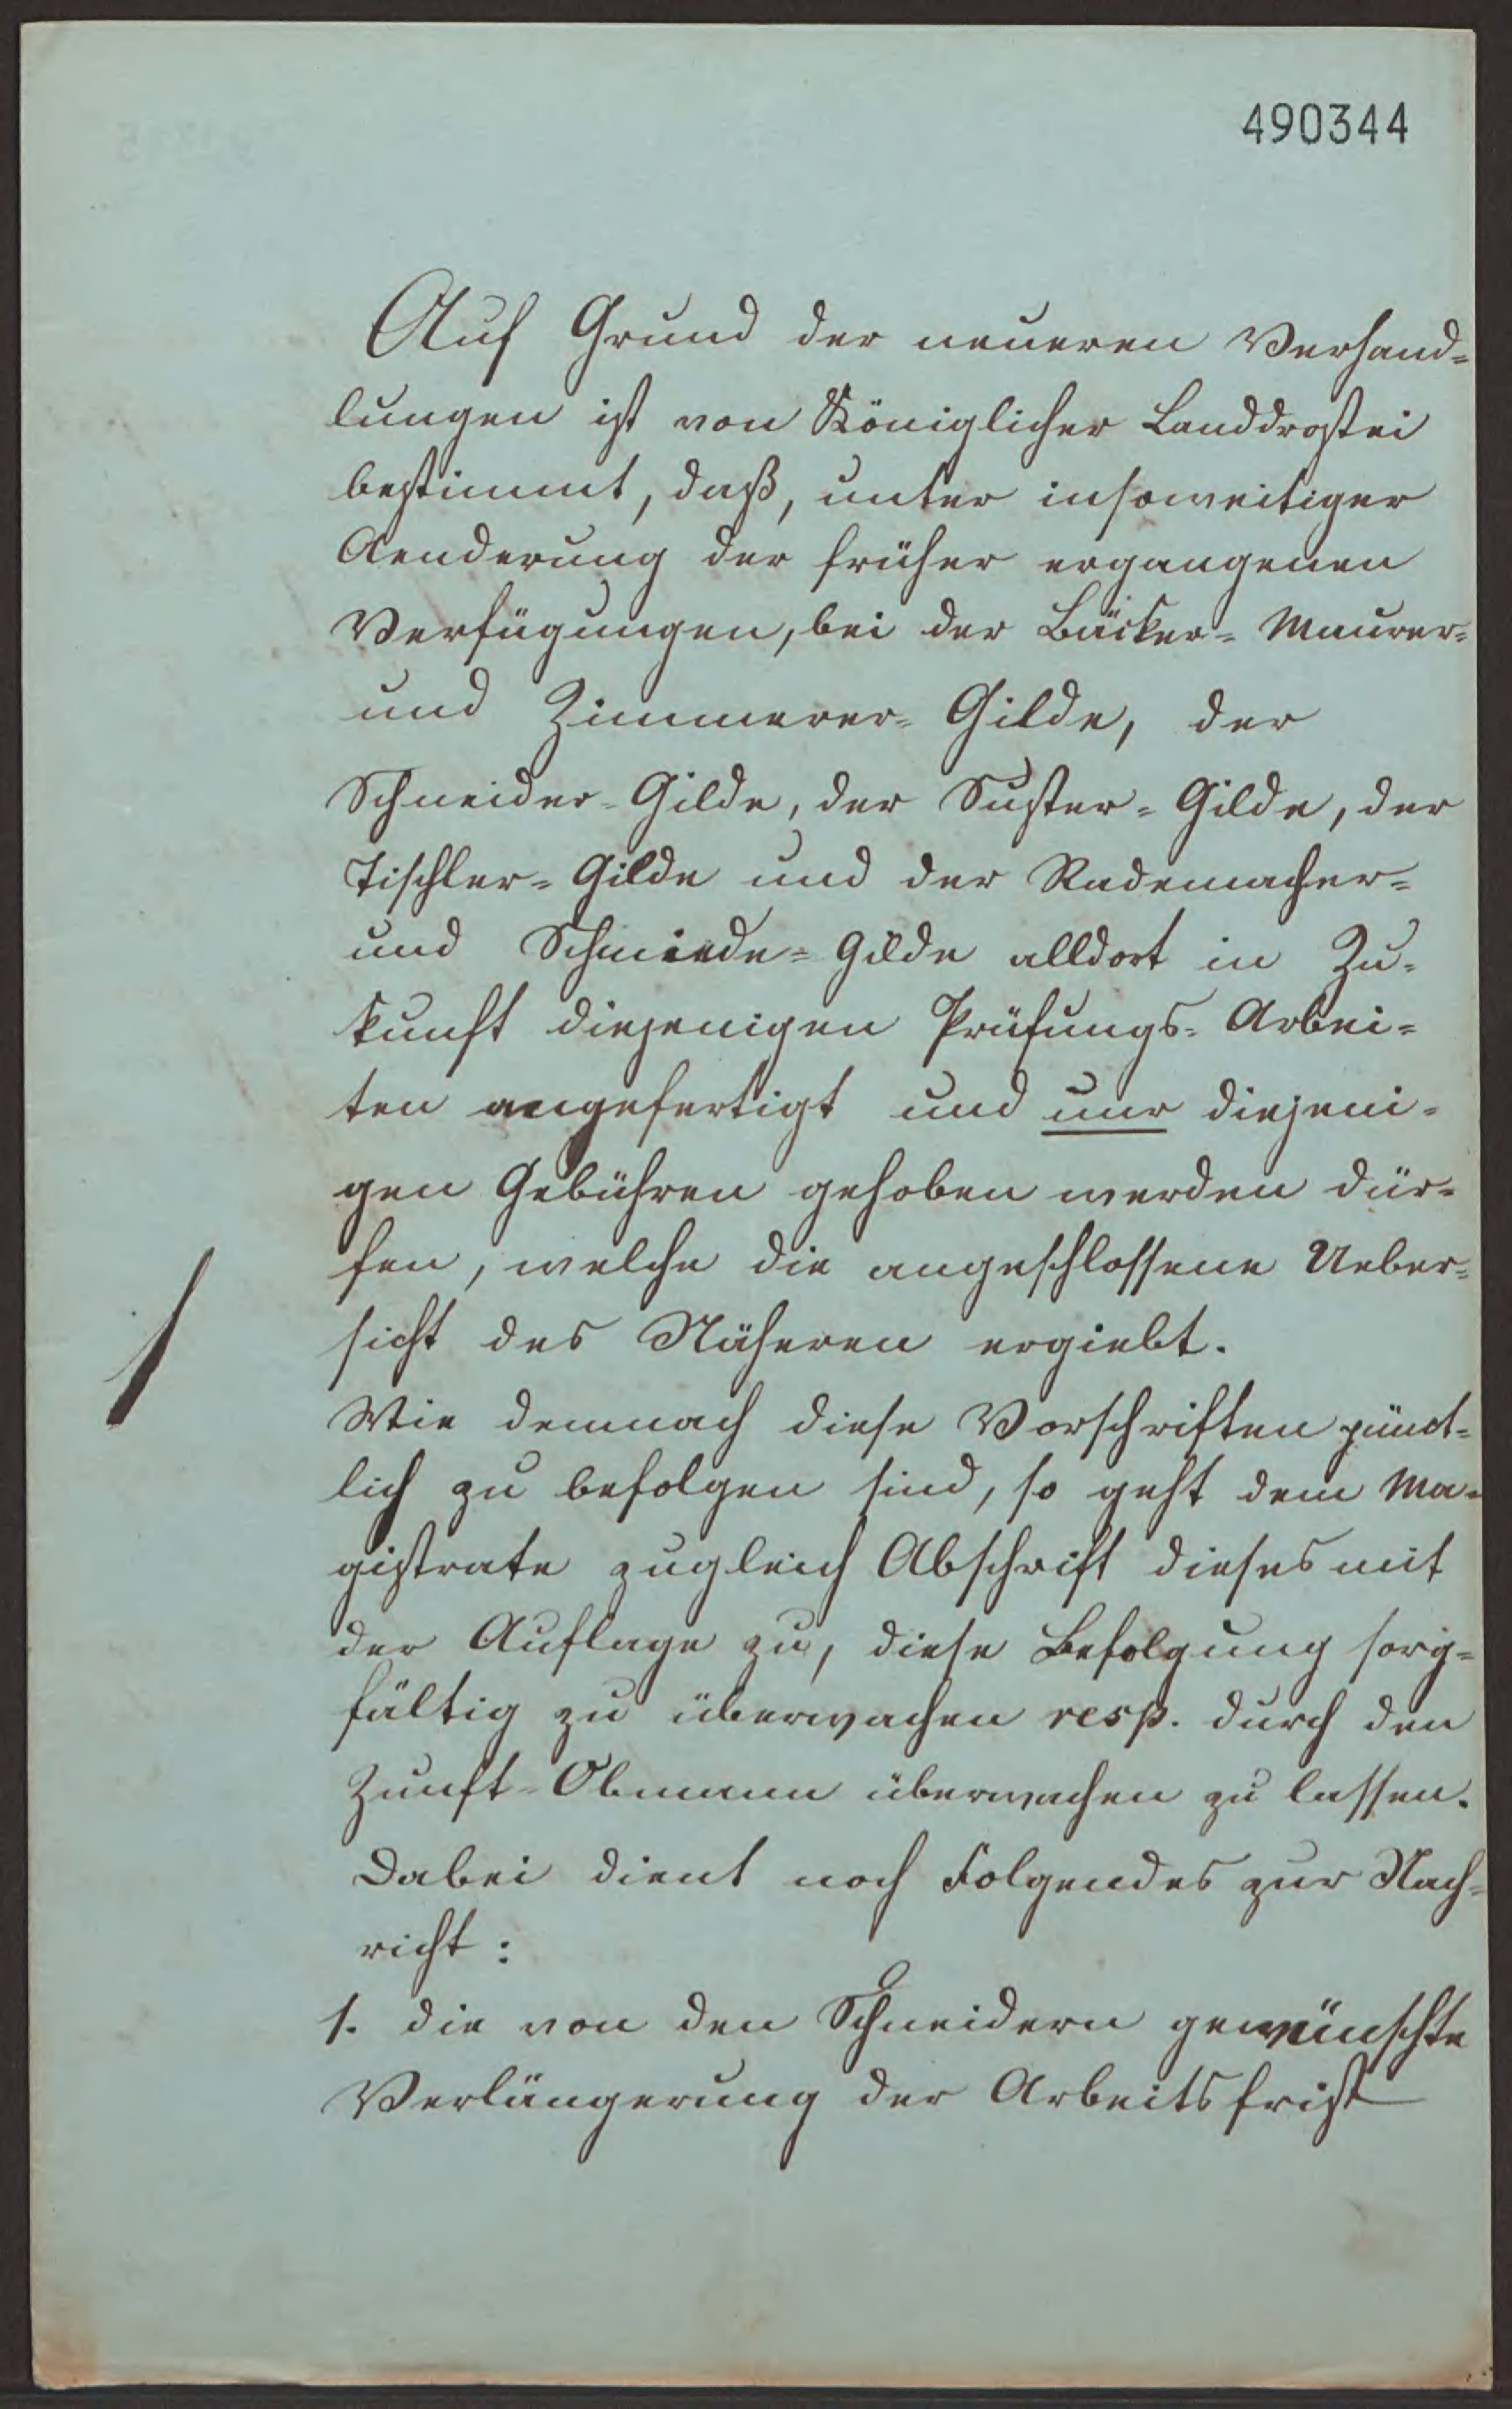 490344
Auf Grund der neueren Verhand-
lungen ist von Königlicher Landdrostei
bestimmt, daß, unter insoweitiger
Aenderung der früher ergangenen
Verfügungen, bei der Bäcker- Maurer-
und Zimmerer- Gilde, der
Schneider-Gilde, der Suster-Gilde, der
Tischler-Gilde und der Rademacher-
und Schmiede-Gilde alldort in Zu-
kunft diejenigen Prüfungs-Arbei-
ten angefertigt und nur diejeni-
gen Gebühren gehoben werden dür-
fen, welche die angeschlossene Ueber-
sicht des Näheren ergiebt.
Wie demnach diese Vorschriften pünct-
lich zu befolgen sind, so geht dem Ma-
gistrate zugleich Abschrift dieses mit
der Auflage zu, diese Befolgung sorg-
fältig zu überwachen resp. durch den
Zunft-Obmann überwachen zu lassen.
Dabei dient noch Folgendes zur Nach-
richt:
1. die von den Schneidern gewünschte
Verlängerung der Arbeitsfrist